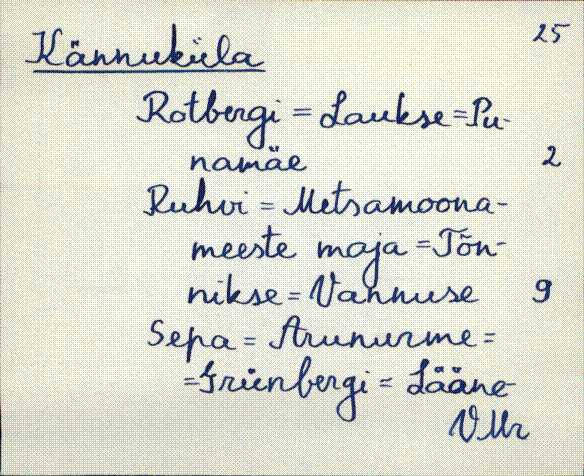 Kännuküla 25
Rotbergi = Laukse = Pu-
namäe 2
Ruhvi = Metsamoona-
meeste maja = Tõn-
nikse = Vannuse 9
Sepa = Arunurme =
= Grünbergi = Lääne
VMr